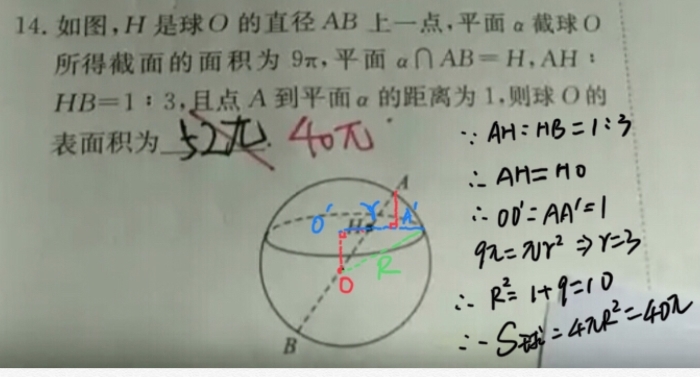 14. 如图,H 是球O 的直径 AB 上一点,平面 α 截球O
所得截面的面积为 9π,平面 α∩AB=H,AH:
HB=1:3,且点 A 到平面 α 的距离为 1,则球 O 的
表面积为 52π. 40π
∵ AH:HB=1:3
∴ AH=HO
∴ OO'=AA'=1
9π=πr²⇒r=3
∴ R²=1+9=10
∴ S球=4πR²=40π
A
O' r A'
H
R
O
B